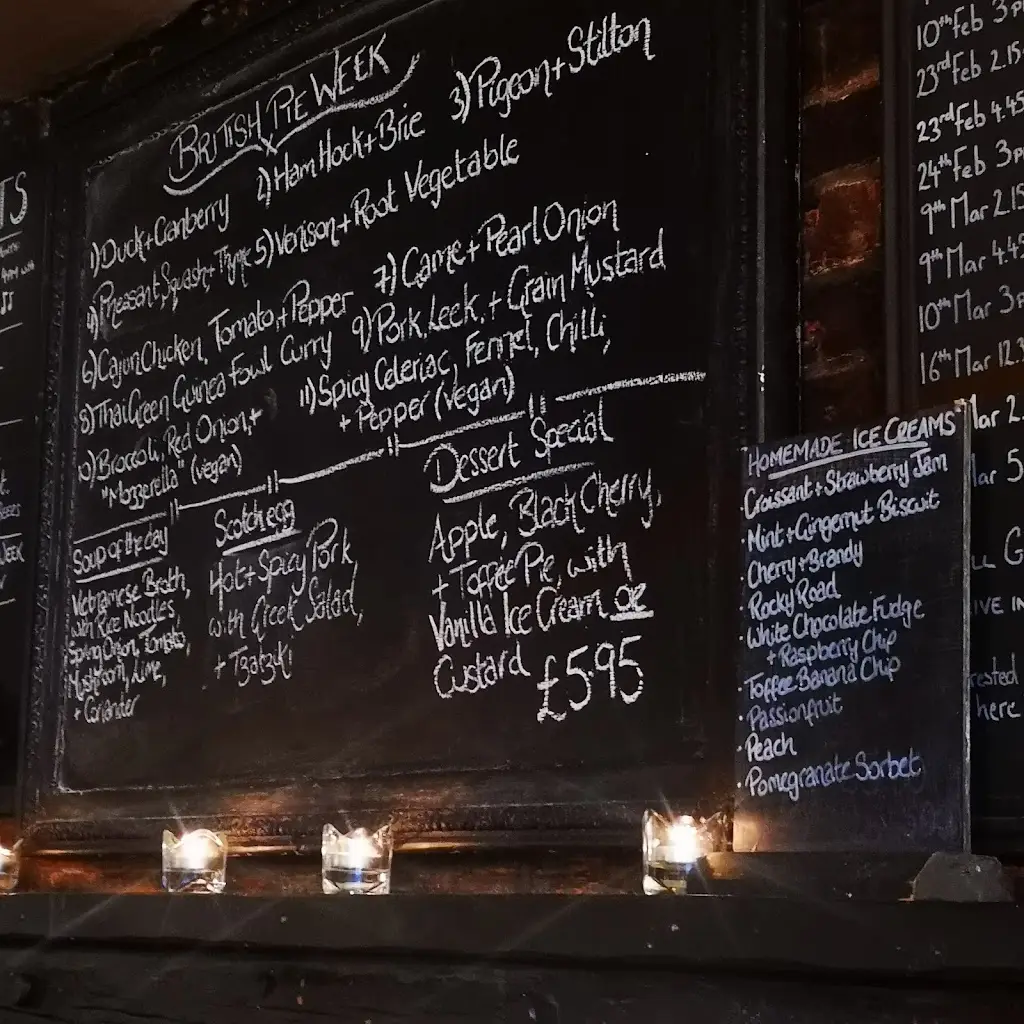 TS
JJ
BRITISH PIE WEEK
1) Duck + Cranberry
2) Ham Hock + Brie
3) Pigeon + Stilton
4) Pheasant, Squash + Thyme
5) Venison + Root Vegetable
6) Cajun Chicken, Tomato, + Pepper
7) Game + Pearl Onion
8) Thai Green Guinea Fowl Curry
9) Pork, Leek, + Grain Mustard
10) Broccoli, Red Onion, +
"Mozzerella" (vegan)
11) Spicy Celeriac, Fennel, Chilli,
+ Pepper (vegan)
Soup of the day
Vietnamese Broth,
with Rice Noodles,
Spring Onion, Tomato,
Mushroom, Lime,
+ Coriander
Scotch egg
Hot + Spicy Pork,
with Greek Salad,
+ Tzatziki
Dessert Special
Apple, Black Cherry,
+ Toffee Pie, with
Vanilla Ice Cream or
Custard £5.95
HOMEMADE ICE CREAMS
· Croissant + Strawberry Jam
· Mint + Gingernut Biscuit
· Cherry + Brandy
· Rocky Road
· White Chocolate Fudge
+ Raspberry Chip
· Toffee Banana Chip
· Passionfruit
· Peach
· Pomegranate Sorbet
10th Feb 3p
23rd Feb 2.15
23rd Feb 4.45
24th Feb 3p
9th Mar 2.15
9th Mar 4.45
10th Mar 3p
16th Mar 12.3
Mar 2.
Mar 5
G
IVE IN
rested
here